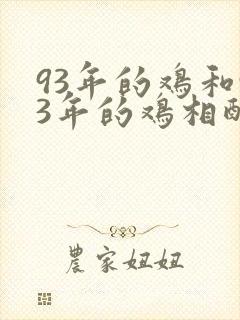 93年的鸡和
3年的鸡相
農家妞妞